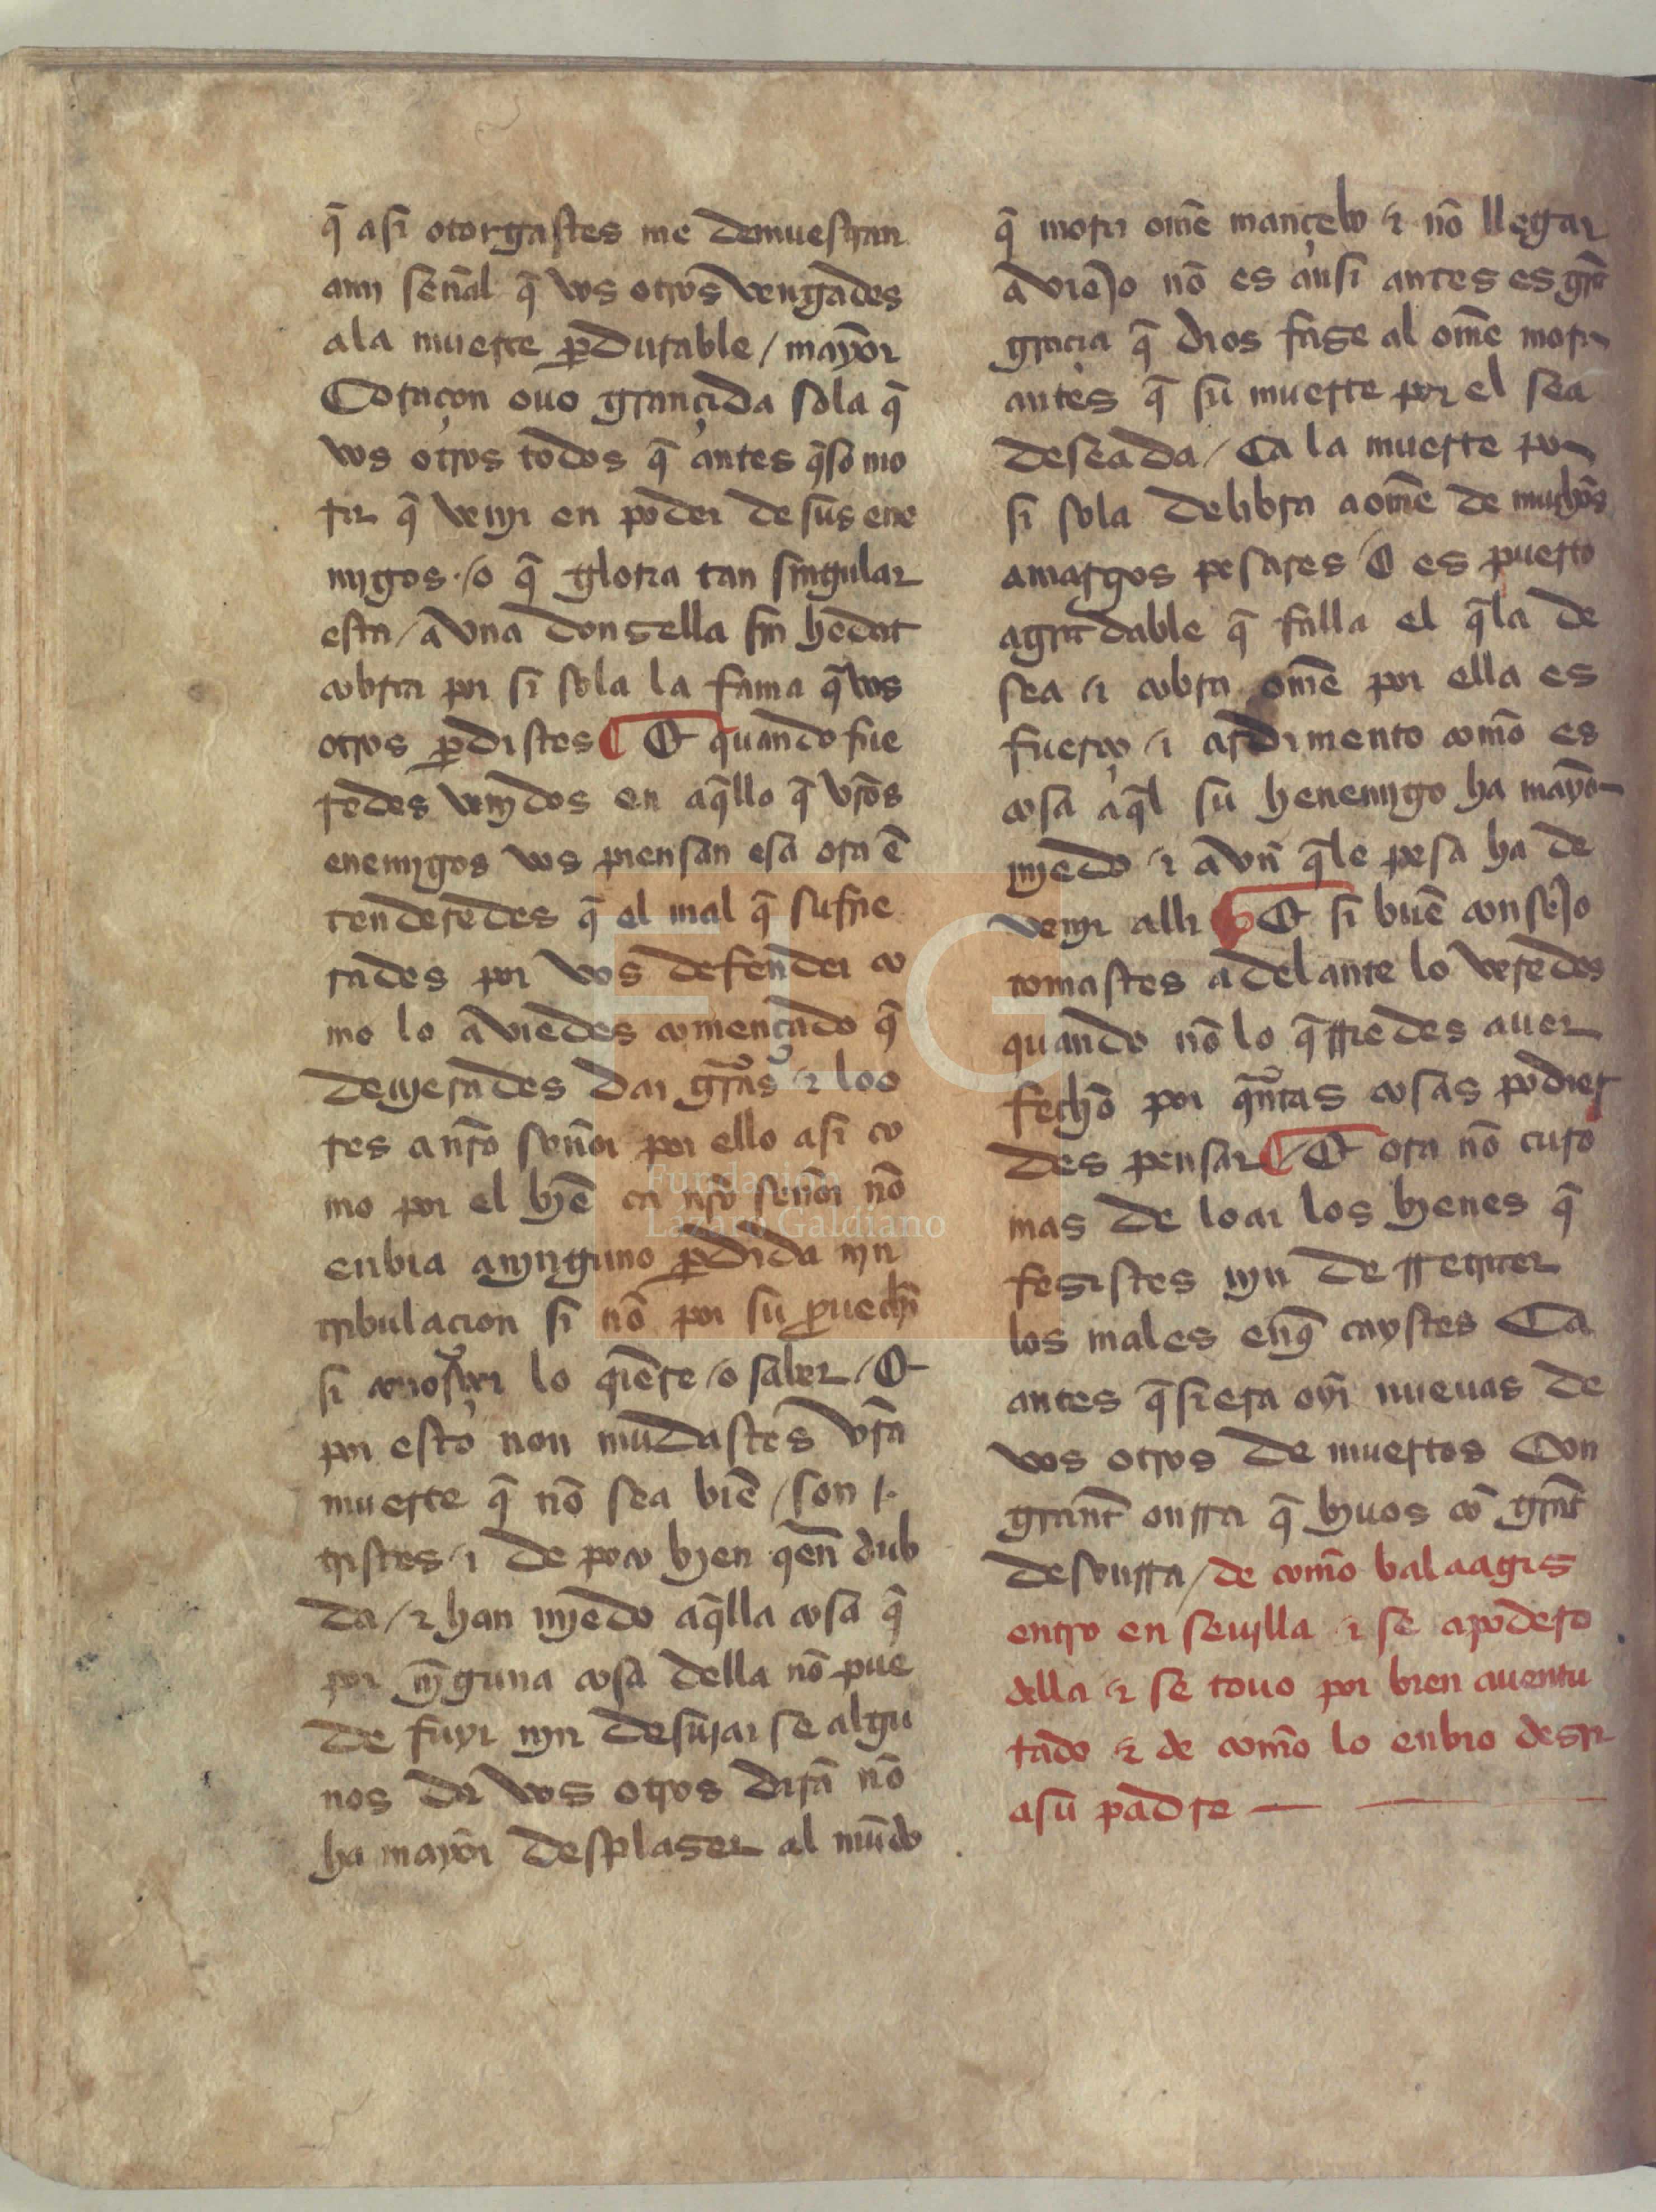 q̃ asi otorgastes me demuestran
ami señal q̃ vos otros vengades
ala muerte ꝑdurable / mayor
Coraçon ouo grançida sola q̃
vos otros todos q̃ antes q̃so mo
rir q̃ venir en poder de sus ene
migos / o q̃ gloria tan singular
esta / a vna donsella sin hedat
cobrar por si sola la fama q̃ vos
otros ꝑdistes ¶ Et quando fue
redes venjdos en aq̃llo q̃ vr̃os
enemigos vos piensan esa ora ẽ
tenderedes q̃ el mal q̃ sufrie
rades por vos defender co
mo lo aviedes començado q̃
deuierades dar grãs ⁊ loo
res a nr̃o señor por ello asi co
mo por el bjẽ ca nr̃o señor nõ
enbia a njnguno ꝑdida njn
tribulacion si nõ por su prouecho
si conosçer lo qiere / o saber / Et
por esto non mudastes vr̃a
muerte q̃ nõ sea biẽ / son
tristes ⁊ de poco bjen qen dub
da / ⁊ han mjedo aq̃lla cosa q̃
por nj̃guna cosa della nõ pue
de fuyr njn desujar se algu
nos de vos otros dirã nõ
ha mayor desplaser al mũdo
q̃ morir omẽ mançebo ⁊ nõ llegar
a viejo nõ es ansi antes es grãt
gracia q̃ dios fase al omẽ morir
antes q̃ su muerte por el sea
deseada / Ca la muerte por
si sola delibra a omẽ de muchos
amargos pesares / E es puerto
agradable q̃ falla el q̃la de
sea ⁊ cobra omẽ por ella es
fuerço ⁊ ardimento comõ es
cosa aq̃l su henemigo ha mayor
mjedo ⁊ avñ q̃le pesa ha de
venjr alli ¶ Et si buẽ consejo
tomastes adelante lo veredes
quando nõ lo q̃rriedes auer
fecho por qũtas cosas podier
des pensar ¶ Et ora nõ curo
mas de loar los bjenes q̃
fesistes njn de rretraer
los males enq̃ caystes Ca
antes q̃siera oyr nueuas de
vos otros de muertos Con
grant onrra q̃ bjuos cõ grãt
desonrra / de comõ balaagis
entro en seujlla ⁊ se apodero
della ⁊ se touo por bien auentu
rado ⁊ de comõ lo enbio desir
asu padre
Fundación
Lázaro Galdiano
FLG